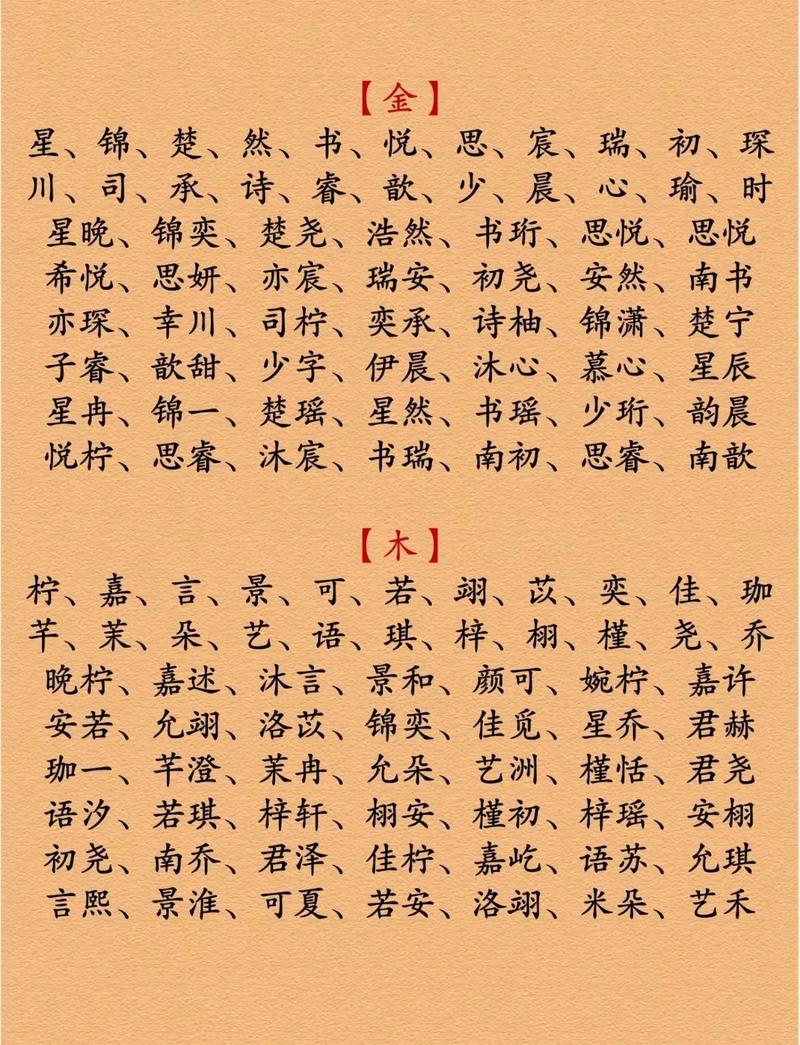 【金】
星、锦、楚、然、书、悦、思、宸、瑞、初、琛
川、司、承、诗、睿、歆、少、晨、心、瑜、时
星晚、锦奕、楚尧、浩然、书珩、思悦、思悦
希悦、思妍、亦宸、瑞安、初尧、安然、南书
亦琛、幸川、司柠、奕承、诗柚、锦潇、楚宁
子睿、歆甜、少字、伊晨、沐心、慕心、星辰
星冉、锦一、楚瑶、星然、书瑶、少珩、韵晨
悦柠、思睿、沐宸、书瑞、南初、思睿、南歆
【木】
柠、嘉、言、景、可、若、翊、苡、奕、佳、珈
芊、茉、朵、艺、语、琪、梓、栩、槿、尧、乔
晚柠、嘉述、沐言、景和、颜可、婉柠、嘉许
安若、允翊、洛苡、锦奕、佳觅、星乔、君赫
珈一、芊澄、茉冉、允朵、艺洲、槿恬、君尧
语汐、若琪、梓轩、栩安、槿初、梓瑶、安栩
初尧、南乔、君泽、佳柠、嘉屹、语苏、允琪
言熙、景淮、可夏、若安、洛翊、米朵、艺禾